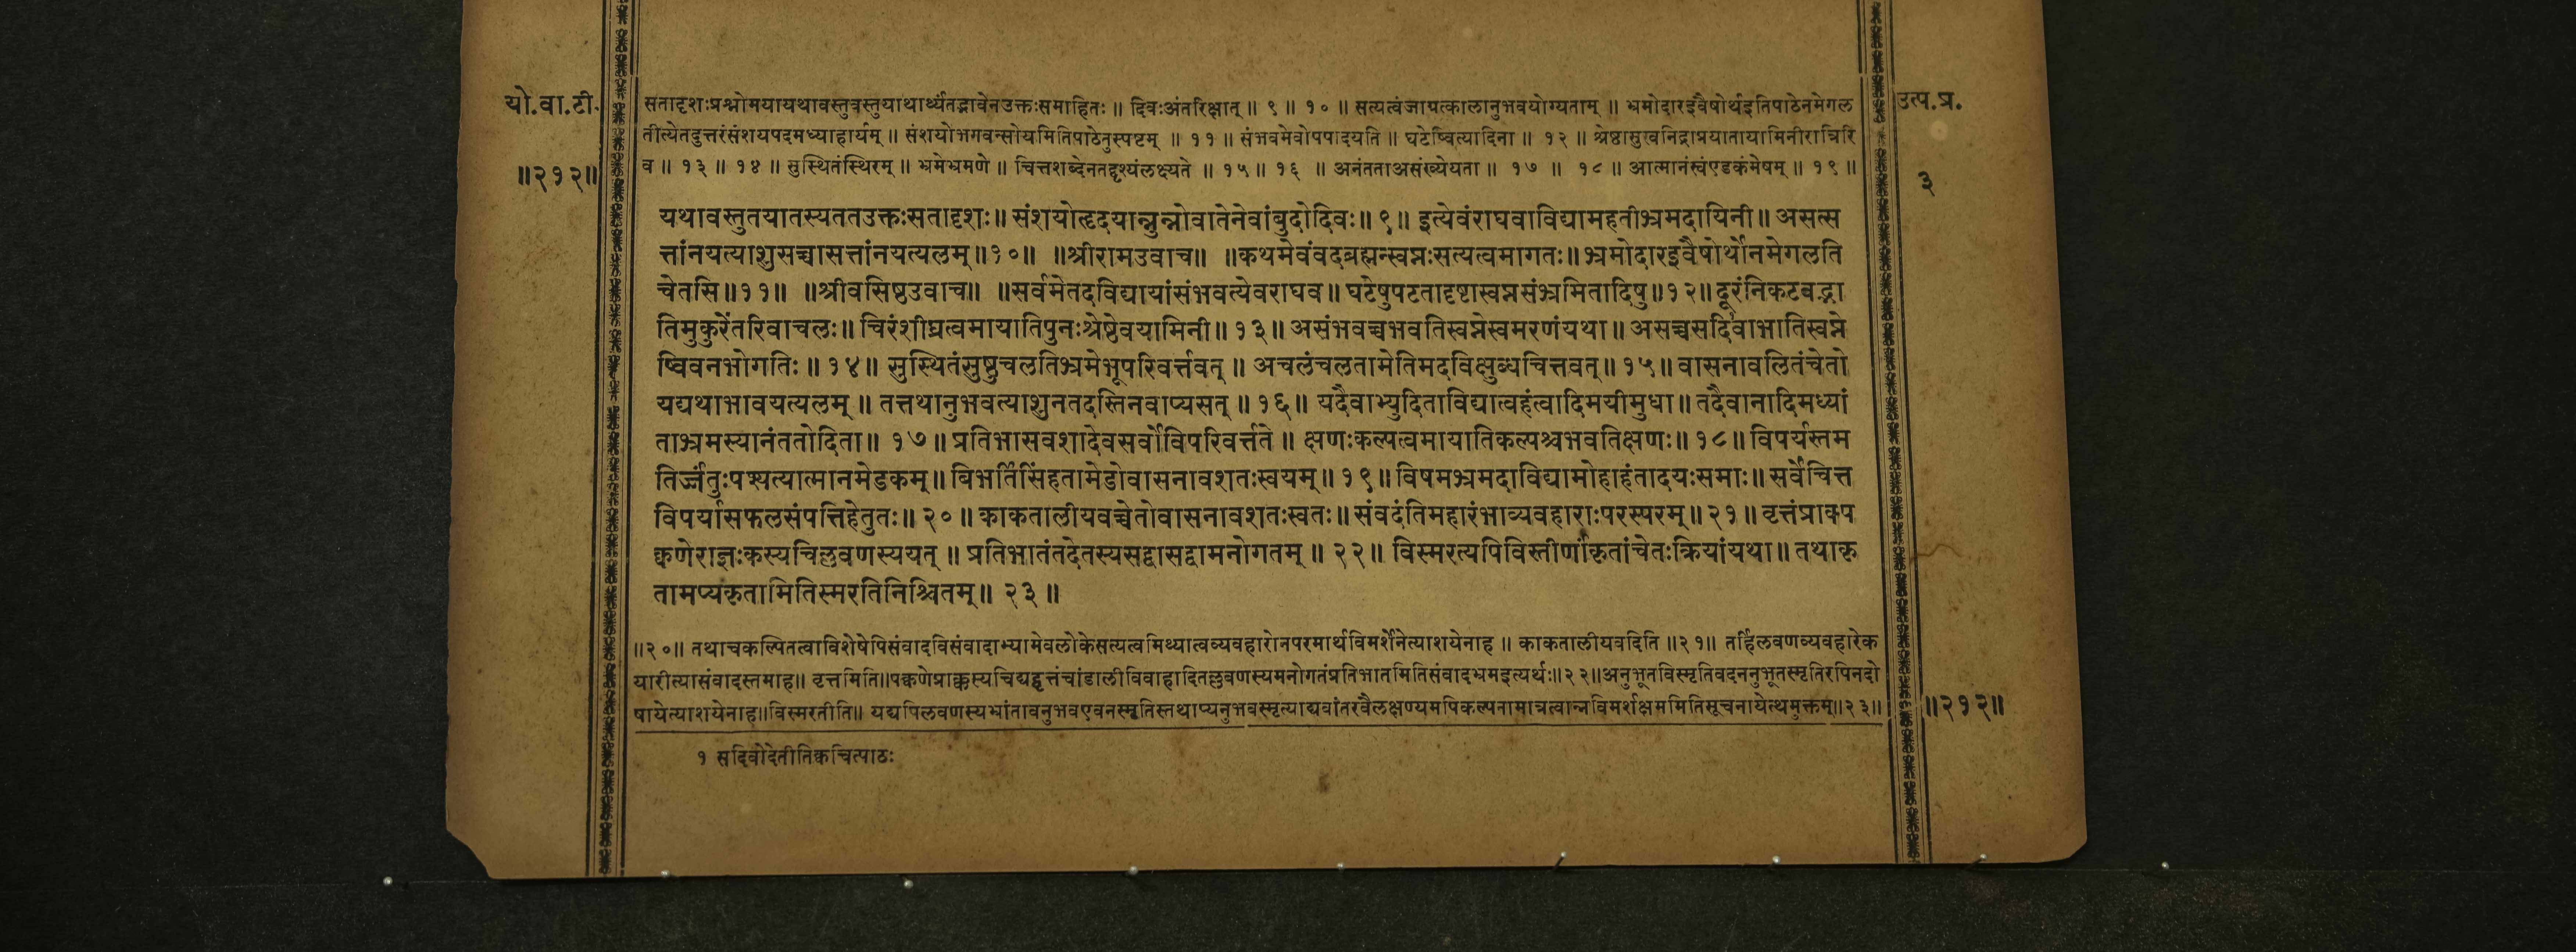 यो.वा.टी.
॥२१२॥
उत्प.प्र.
३
सतादृशःप्रश्नोमयायथावस्तुवस्तुयाथार्थ्यंतद्भावेनउक्तःसमाहितः ॥ दिवःअंतरिक्षात् ॥ ९ ॥ १० ॥ सत्यत्वंजाग्रत्कालानुभवयोग्यताम् ॥ भ्रमोदारइवैषोर्थइतिपाठेनमेगल
तीत्येतदुत्तरंसंशयपदमध्याहार्यम् ॥ संशयोभगवन्सोयमितिपाठेनुस्पष्टम् ॥ ११ ॥ संभवमेवोपपादयति ॥ घटेष्वित्यादिना ॥ १२ ॥ श्रेष्ठासुखनिद्राप्रयातायामिनीरात्रिरि
व ॥ १३ ॥ १४ ॥ सुस्थितंस्थिरम् ॥ भ्रमेभ्रमणे ॥ चित्तशब्देनतद्दृश्यंलक्ष्यते ॥ १५ ॥ १६ ॥ अनंतताअसंख्येयता ॥ १७ ॥ १८ ॥ आत्मानंस्वंएडकंमेषम् ॥ १९ ॥
यथावस्तुतयातस्यततउक्तःसतादृशः॥ संशयोत्हृदयान्नुन्नोवातेनेवांबुदोदिवः॥ ९॥ इत्येवंराघवाविद्यामहतीभ्रमदायिनी॥ असत्स
त्तांनयत्याशुसच्चासत्तांनयत्यलम्॥१०॥ ॥श्रीरामउवाच॥ ॥कथमेवंवदब्रह्मन्स्वप्नःसत्यत्वमागतः॥भ्रमोदारइवैषोर्थोनमेगलति
चेतसि॥११॥ ॥श्रीवसिष्ठउवाच॥ ॥सर्वमेतदविद्यायांसंभवत्येवराघव॥ घटेषुपटतादृष्टास्वप्नसंभ्रमितादिषु॥१२॥ दूरंनिकटवद्भा
तिमुकुरेंतरिवाचलः॥ चिरंशीघ्रत्वमायातिपुनःश्रेष्ठेवयामिनी॥ १३॥ असंभवच्चभवतिस्वप्नेस्वमरणंयथा॥ असच्चसदि१वाभातिस्वप्ने
ष्विवनभोगतिः॥ १४॥ सुस्थितंसुष्ठुचलतिभ्रमेभूपरिवर्त्तवत् ॥ अचलंचलतामेतिमदविक्षुब्धचित्तवत्॥ १५॥ वासनावलितंचेतो
यद्यथाभावयत्यलम् ॥ तत्तथानुभवत्याशुनतदस्तिनवाप्यसत् ॥ १६॥ यदैवाभ्युदिताविद्यात्वहंत्वादिमयीमुधा॥ तदैवानादिमध्यां
ताभ्रमस्यानंततोदिता॥ १७॥ प्रतिभासवशादेवसर्वोविपरिवर्त्तते॥ क्षणःकल्पत्वमायातिकल्पश्चभवतिक्षणः॥१८॥ विपर्यस्तम
तिर्ज्जंतुःपश्यत्यात्मानमेडकम्॥ बिभर्तिसिंहतामेडोवासनावशतःस्वयम्॥ १९॥ विषमभ्रमदाविद्यामोहाहंतादयःसमाः॥ सर्वेचित्त
विपर्यासफलसंपत्तिहेतुतः॥ २०॥ काकतालीयवच्चेतोवासनावशतःस्वतः॥ संवदंतिमहारंभाव्यवहाराःपरस्परम्॥ २१॥ वृत्तंप्राक्प
क्कणेराज्ञःकस्यचिल्लवणस्ययत् ॥ प्रतिभातंतदेतस्यसद्वासद्वामनोगतम् ॥ २२॥ विस्मरत्यपिविस्तीर्णांकृतांचेतःक्रियांयथा॥ तथाकृ
तामप्यकृतामितिस्मरतिनिश्चितम्॥ २३॥
॥२०॥ तथाचकल्पितत्वाविशेषेपिसंवादविसंवादाभ्यामेवलोकेसत्यत्वमिथ्यात्वव्यवहारोनपरमार्थविमर्शेनेत्याशयेनाह ॥ काकतालीयवदिति ॥२१॥ तर्हिलवणव्यवहारेक
यारीत्यासंवादस्तमाह॥ वृत्तमिति॥पक्कणेप्राक्कस्यचिद्यद्वृत्तंचांडालीविवाहादितल्लवणस्यमनोगतंप्रतिभातमितिसंवादभ्रमइत्यर्थः॥२२॥अनुभूतविस्मृतिवदननुभूतस्मृतिरपिनदो
षायेत्याशयेनाह॥विस्मरतीति॥ यद्यपिलवणस्यभ्रांतावनुभवएवनस्मृतिस्तथाप्यनुभवस्मृत्याद्यवांतरवैलक्षण्यमपिकल्पनामात्रत्वान्नविमर्शक्षममितिसूचनायेत्थमुक्तम्॥२३॥
॥२१२॥
१ सदिवोदेतीतिक्वचित्पाठः